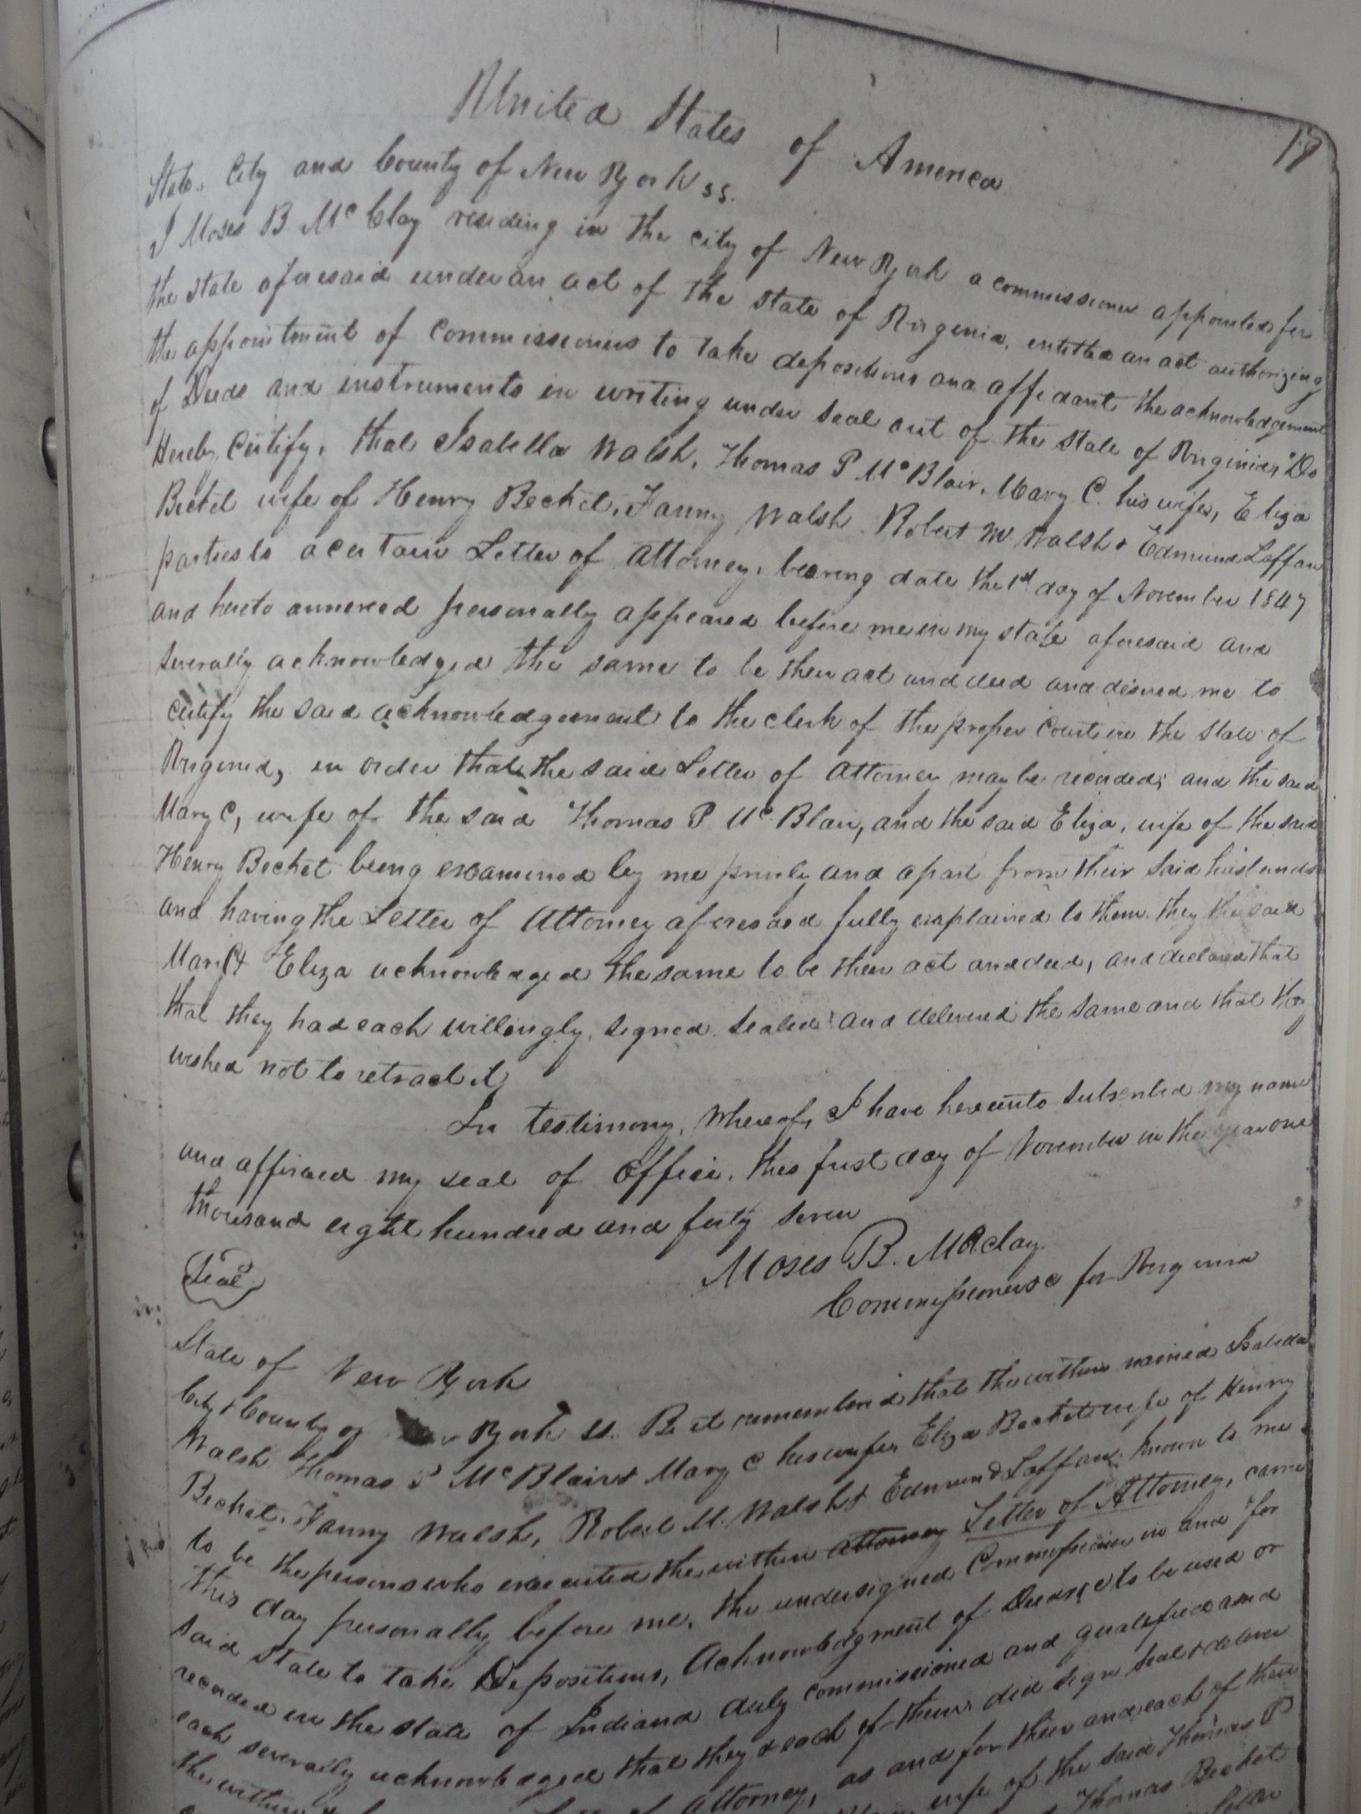 United States of America
17
State, City and County of New York ss.
I Moses B McClay residing in the city of New York a commissioner appointed for
the state aforesaid under an act of the State of Virginia, entitled an act authorizing
the appointment of Commissioners to take depositions and affidavit the acknowledgement
of Deeds and instruments in writing under seal out of the State of Virginia, "Do
Hereby Certify, that Isabella Walsh, Thomas P McBlair, Mary C. his wife, Eliza
Becket wife of Henry Becket, Fanny Walsh. Robert M Walsh & Edmund Laffan
parties to a certain Letter of Attorney, bearing date the 1st day of November 1847
and hereto annexed personally appeared before me in my state aforesaid and
severally acknowledged the same to be their act and deed and desired me to
certify the said acknowledgement to the clerk of the proper Court in the State of
Virginia, in order that the said Letter of Attorney may be recorded; and the said
Mary C, wife of the said Thomas P McBlair, and the said Eliza, wife of the said
Henry Becket being examined by me privily and apart from their said husbands
and having the Letter of Attorney aforesaid fully explained to them they the said
Mary C & Eliza acknowledged the same to be their act and deed, and declared that
that they had each willingly, signed. sealed and delivered the same and that they
wished not to retract it,
In testimony, Whereof, I have hereunto subscribed my name
and affixed my seal of Office, this first day of November in the year one
thousand eight hundred and forty seven
Moses B. Maclay
Seal
Commissioner for Virginia
State of New York
City & County of New York ss. Be it remembered that the within named Isabella
Walsh Thomas P McBlair & Mary C his wife, Eliza Becket wife of Henry
Becket, Fanny Walsh, Robert M. Walsh & Edmund Laffan known to me
to be the persons who executed the within attorney Letter of Attorney, came
this day personally before me, the undersigned Commissioner in and for
said State to take Depositions, Acknowledgment of Deeds &c to be used or
recorded in the State of Indiana duly commissioned and qualified and
each severally acknowledged that they & each of them did sign seal & deliver
the within Attorney, as and for their and each of their
wife of the said Thomas P
Thomas Becket